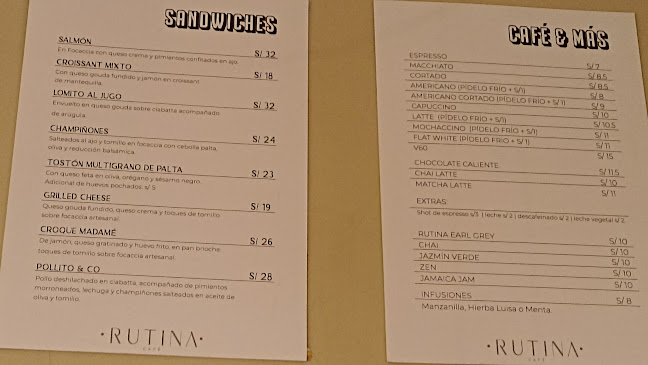 SANDWICHES
SALMÓN S/ 32
En focaccia con queso crema y pimientos confitados en ajo.
CROISSANT MIXTO S/ 18
Con queso gouda fundido y jamón en croissant
de mantequilla.
LOMITO AL JUGO S/ 32
Envuelto en queso gouda sobre ciabatta acompañado
de arugula.
CHAMPIÑONES S/ 24
Salteados al ajo y tomillo en focaccia con cebolla palta,
oliva y reducción balsámica.
TOSTÓN MULTIGRANO DE PALTA S/ 23
Con queso feta en oliva, orégano y sésamo negro.
Adicional de huevos pochados: s/ 5
GRILLED CHEESE S/ 19
Queso gouda fundido, queso crema y toques de tomillo
sobre focaccia artesanal.
CROQUE MADAMÉ S/ 26
De jamón, queso gratinado y huevo frito, en pan brioche
toques de tomillo sobre focaccia artesanal.
POLLITO & CO S/ 28
Pollo deshilachado en ciabatta, acompañado de pimientos
morroneados, lechuga y champiñones salteados en aceite de
oliva y tomillo.
·RUTINA·
CAFÉ
CAFÉ & MÁS
ESPRESSO S/ 7
MACCHIATO S/ 8.5
CORTADO S/ 8.5
AMERICANO (PÍDELO FRÍO + S/1) S/ 8
AMERICANO CORTADO (PÍDELO FRÍO + S/ 1) S/ 9
CAPUCCINO S/ 10
LATTE (PÍDELO FRÍO + S/1) S/ 10.5
MOCHACCINO (PÍDELO FRÍO + S/1) S/ 11
FLAT WHITE (PÍDELO FRÍO + S/1) S/ 11
V60 S/ 15
CHOCOLATE CALIENTE S/ 11.5
CHAI LATTE S/ 10
MATCHA LATTE S/ 11
EXTRAS:
Shot de espresso s/3 | leche s/ 2 | descafeinado s/ 2 | leche vegetal s/ 2
RUTINA EARL GREY S/ 10
CHAI S/ 10
JAZMÍN VERDE S/ 10
ZEN S/ 10
JAMAICA JAM S/ 10
INFUSIONES S/ 8
Manzanilla, Hierba Luisa o Menta.
·RUTINA·
CAFÉ